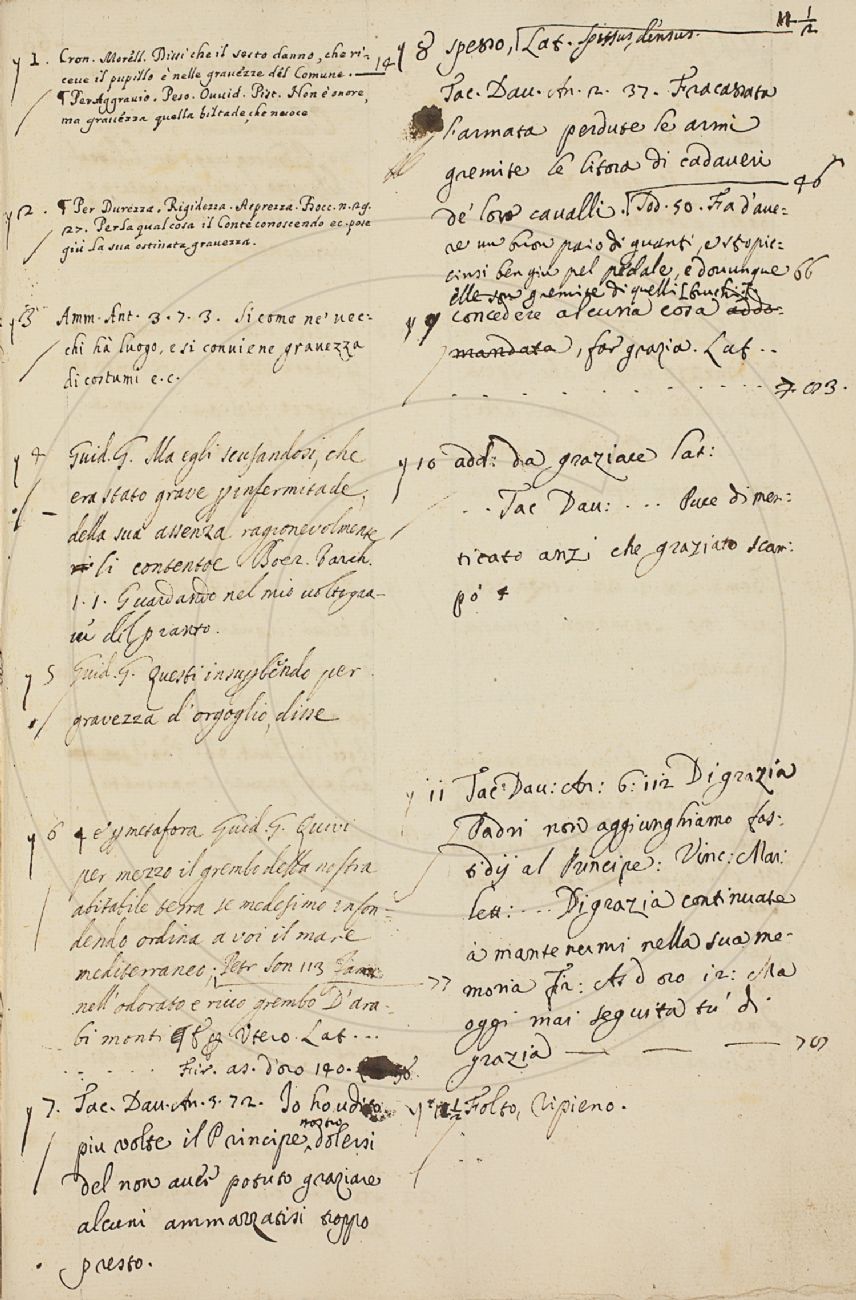 1. Cron. Morell. Dissi che il sesto danno, che ri-
ceve il pupillo è nelle gravezze del Comune. — 14
¶ Per Aggravio. Peso. Ovvid. Pist. Non è onore,
ma gravezza quella biltade, che nuoce
2. ¶ Per Durezza, Rigidezza. Asprezza. Bocc. n. 29.
27. Per la qual cosa il Conte conoscendo ec. pose
giù la sua ostinata gravezza.
3 Amm. Ant. 3. 7. 3. Si come ne' vec-
chi hà luogo, e si conviene gravezza
di costumi e.c.
4 Guid. G. Ma egli scusandosi, che
era stato grave p infermitade,
della sua assenza ragionevolmente
li contentoe Boez. Varch.
1. 1. Guardando nel mio volto gra-
ve del pianto.
5 Guid. G. Questi insuperbendo per
gravezza d'orgoglio, disse
6 ¶ e p metafora Guid. G. Quivi
per mezzo il grembo della nostra
abitabile terra se medesimo infon-
dendo ordina a voi il mare
mediterraneo, Petr Son 113
nell'odorato e ricco grembo D'ara-
bi monti ¶ p Utero. Lat...
Fir. as. d'oro 140.
7. Tac. Dav. An. 3. 72. Io ho udito
più volte il Principe nostro dolersi
del non aver potuto graziare
alcuni ammazzatisi troppo
presto.
11 1/2
8 spesso, Lat. spissus, densus.
Tac. Dav. An. 2. 37. Fracassata
l'armata perdute le armi
gremite le litora di cadaveri
de' loro cavalli. 46
Tod. 50. Fa d'ave-
re un buon paio di guanti, e stopic-
cinsi ben giù pel pedale, e dovunque 66
elle son gremite di quelli
9 concedere alcuna cosa addo-
mandata, far grazia. Lat...
603.
10 add: da graziare Lat:
.. Tac Dav: ... Puce dimen-
ticato anzi che graziato scam-
pò
11 Tac: Dav: An: 6: 112 Di grazia
Padri non aggiunghiamo fas-
tidij al Principe: Vinc: Mar:
lett: ... Di grazia continuate
à mantenermi nella sua me-
moria Fir: As d oro 12: Ma
oggi mai seguita tu di
grazia — — —
1/2 Folto, Ripieno.